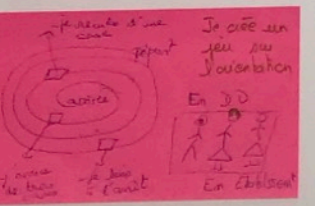 je recule d'une
case
départ
arrivée
j'avance
de trois
je suis
à l'arrêt
Je crée un
jeu sur
l'orientation
En DD
En Etablissemt